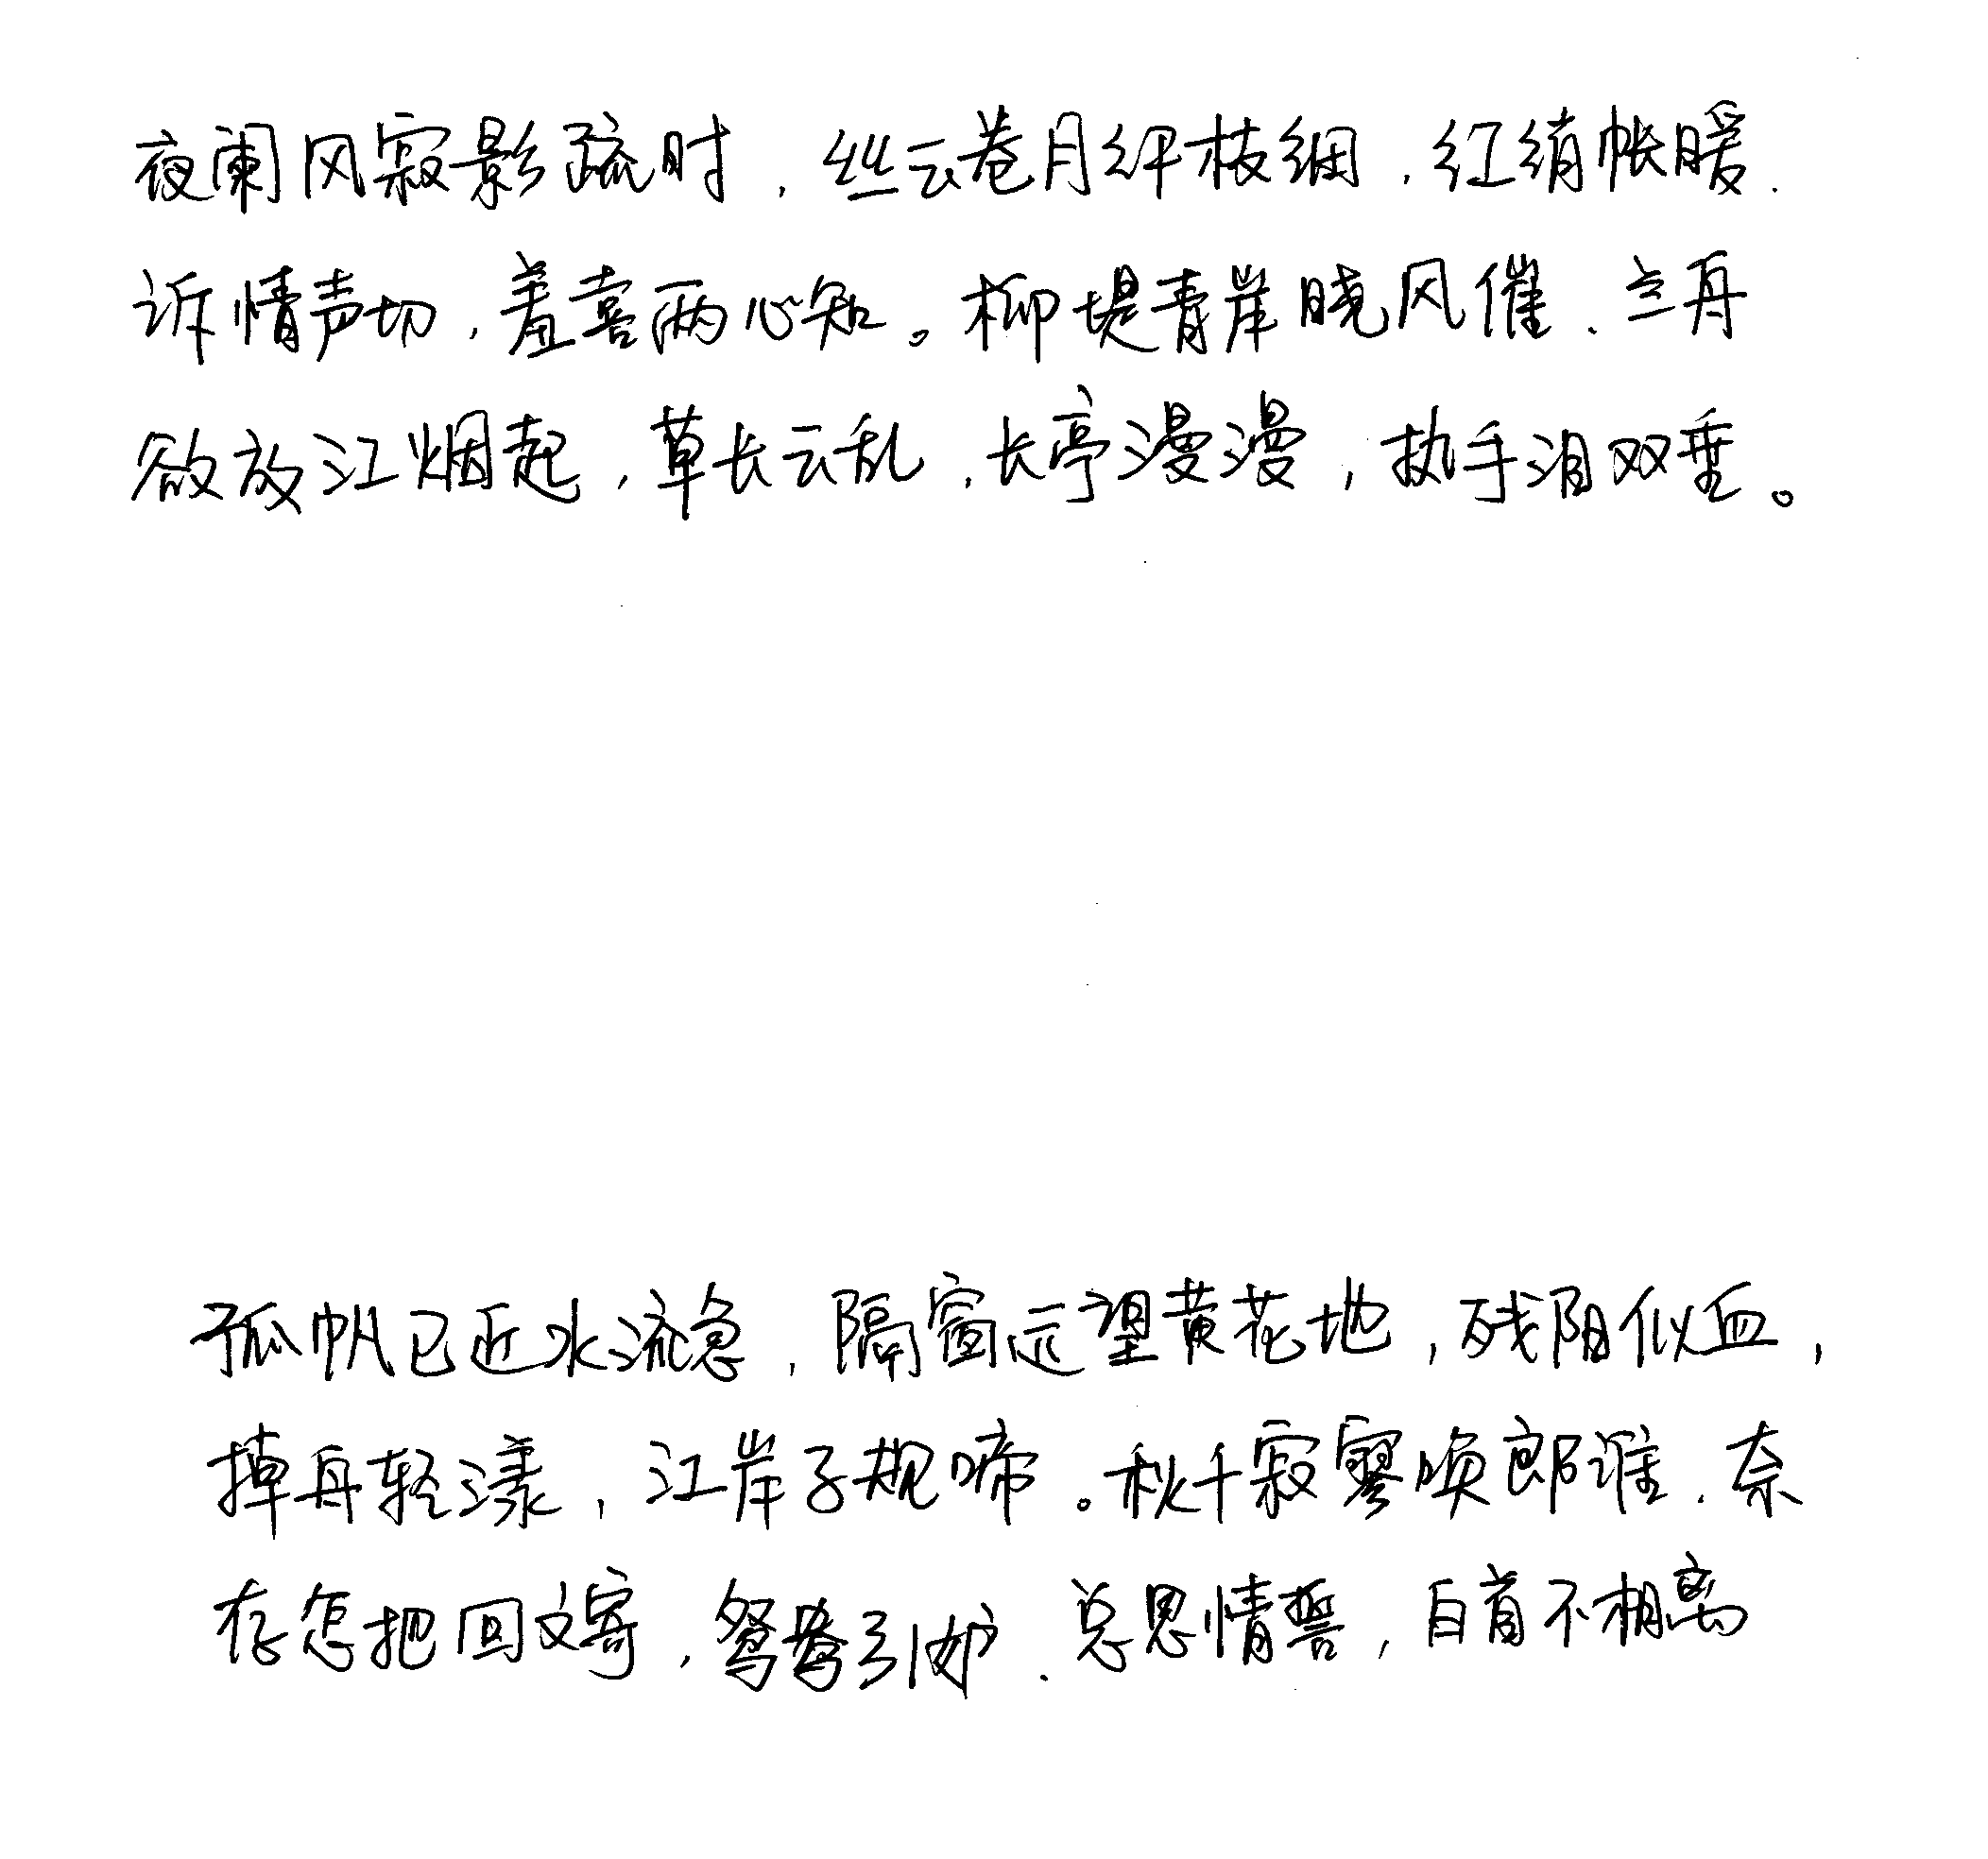 夜阑风寂影疏时，丝云卷月纤枝细，红绡帐暖，
诉情声切，羞喜两心知。柳堤青岸晓风催，兰舟
欲放江烟起，草长云乱，长亭漫漫，执手泪双垂。
孤帆已近水流急，隔窗远望黄花地，残阳似血，
掉舟轻漾，江岸子规啼。秋千寂寥唤郎谁，奈
存怎把回文寄，鸳鸯引妒，总思情誓，白首不相离